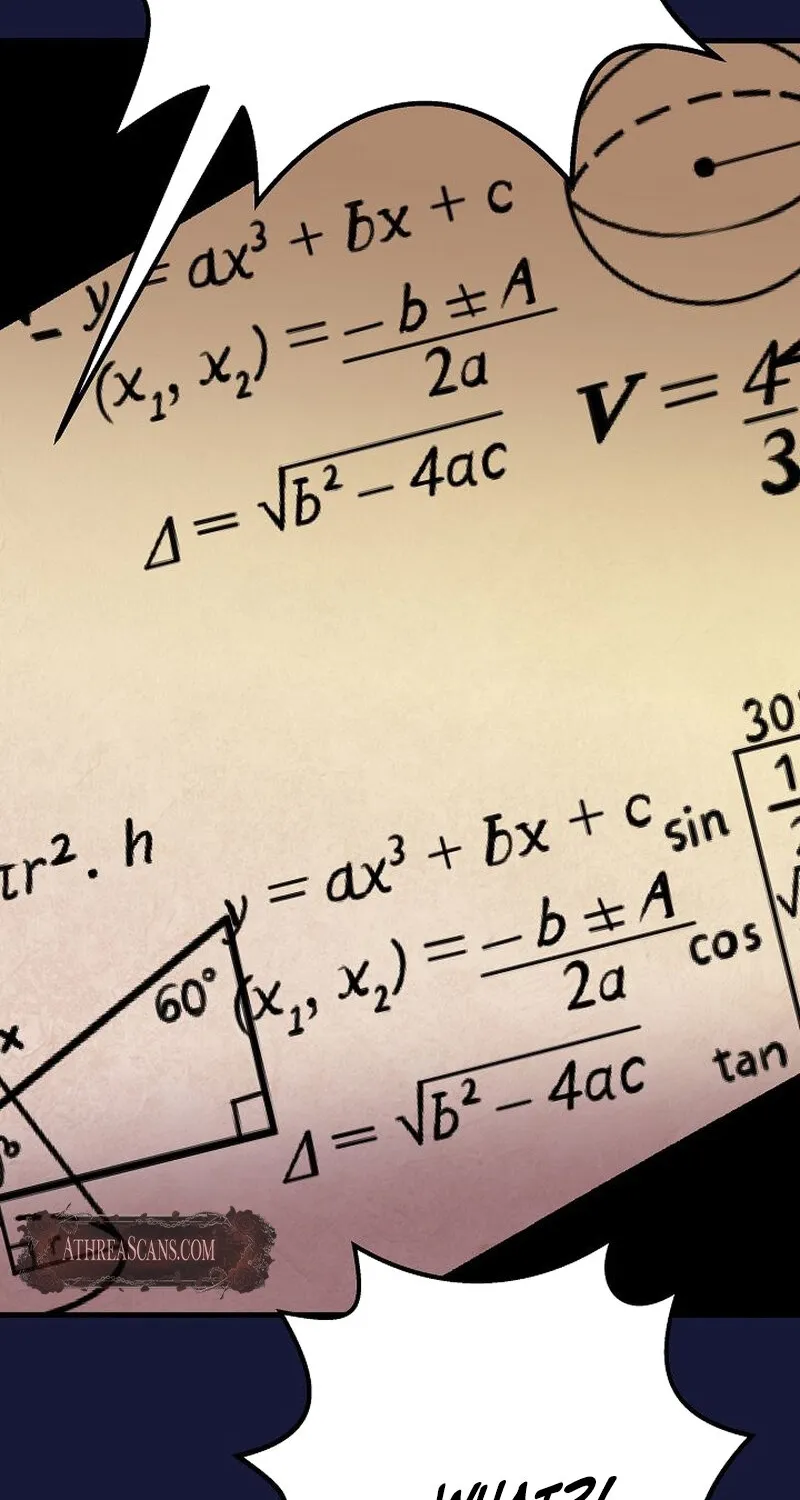 y = ax³ + bx + c
(x₁, x₂) = -b ± A / 2a
Δ = √b² - 4ac
V = 4/3
πr² . h
y = ax³ + bx + c
(x₁, x₂) = -b ± A / 2a
Δ = √b² - 4ac
30°
sin 1/2
cos
tan
60°
x
ATHREASCANS.COM
WHAT?!